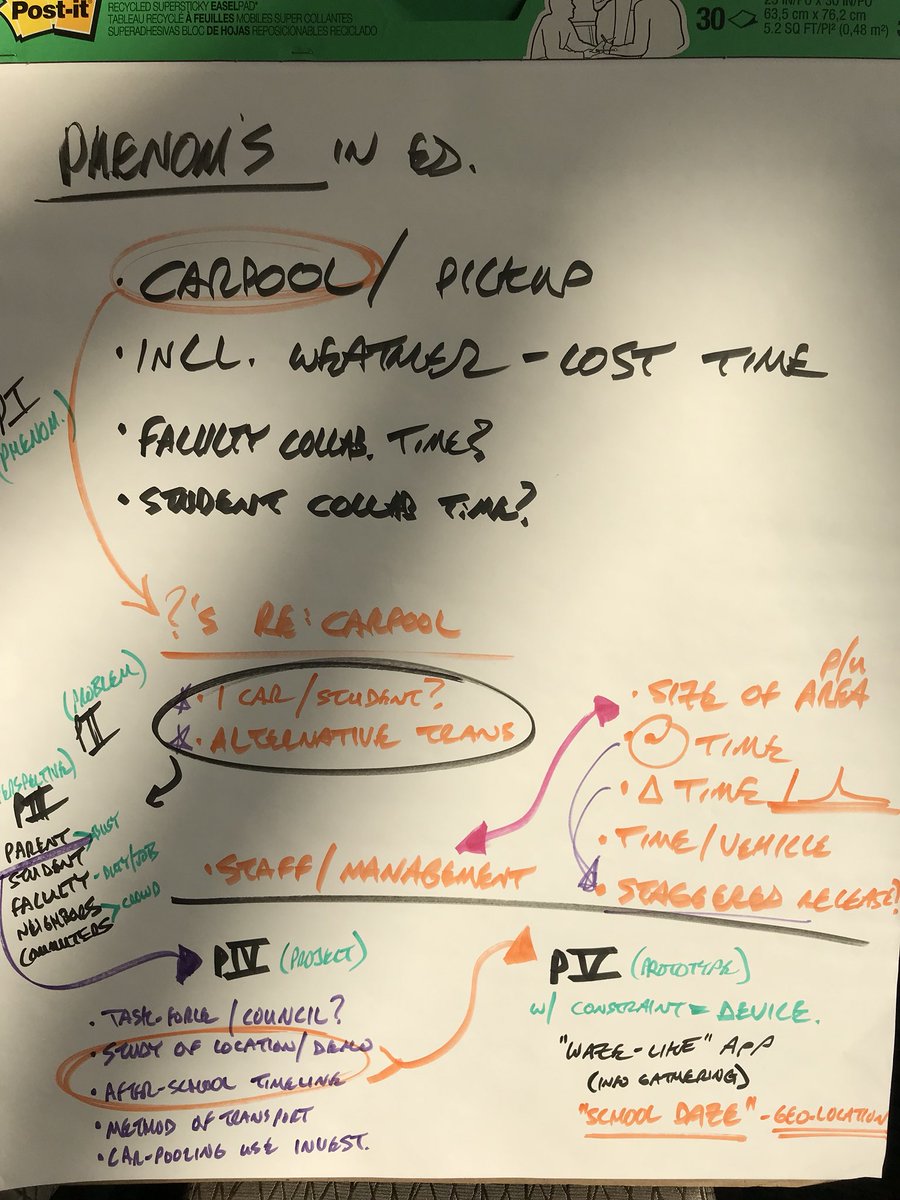 Post-it
RECYCLED SUPERSTICKY EASELPAD*
TABLEAU RECYCLÉ À FEUILLES MOBILES SUPER COLLANTES
SUPERADHESIVAS BLOC DE HOJAS REPOSICIONABLES RECICLADO
30
63,5 cm x 76,2 cm
5.2 SQ FT/PI² (0,48 m²)
PHENOM'S IN ED.
• CARPOOL / PICKUP
• INCL. WEATHER - LOST TIME
• FACULTY COLLAB. TIME?
• STUDENT COLLAB TIME?
PI
(PHENOM.)
?'S RE: CARPOOL
(PROBLEM)
PII
• 1 CAR/STUDENT?
• ALTERNATIVE TRANS
• STAFF/MANAGEMENT
P/U
• SIZE OF AREA
• TIME
• Δ TIME
• TIME/VEHICLE
• STAGGERED RELEASE?
PIII
PARENT > BUSY
STUDENT
FACULTY - DUTY/JOB
NEIGHBORS > CROWD
COMMUTERS
PIV (PROJECT)
• TASK-FORCE / COUNCIL?
• STUDY OF LOCATION/DEMO
• AFTER-SCHOOL TIMELINE
• METHOD OF TRANSPORT
• CAR-POOLING USE INVEST.
PV (PROTOTYPE)
W/ CONSTRAINT = DEVICE.
"WAZE-LIKE" APP
(INFO GATHERING)
"SCHOOL DAZE" - GEO-LOCATION